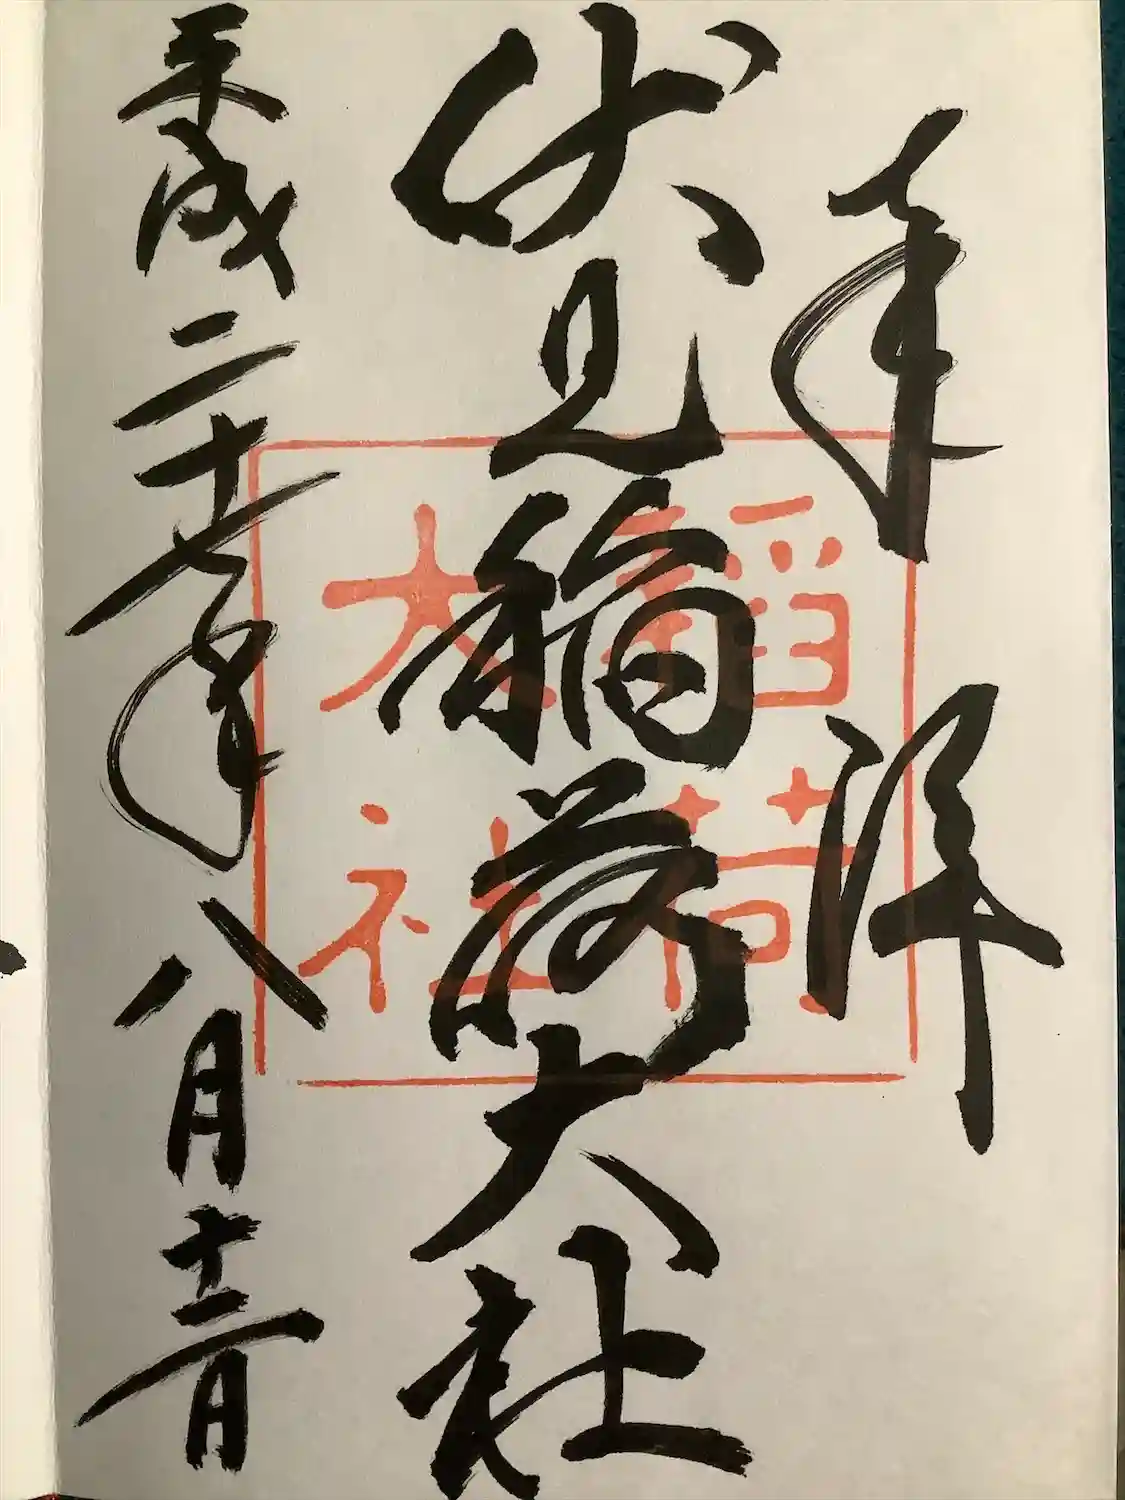 奉拝
伏見稲荷大社
平成二十七年八月十二日
稻荷
大社